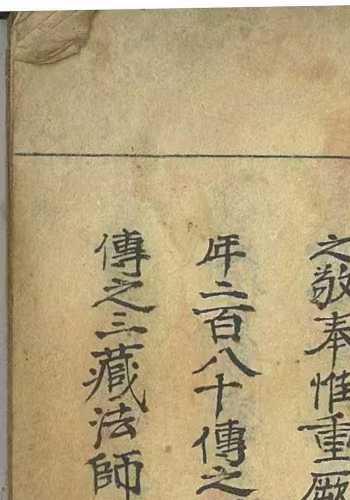 之敬奉惟重厥
年二百八十傳之
傳之三藏法師